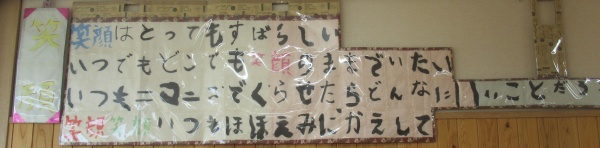 笑顔
笑顔はとってもすばらしい
いつでもどこでも笑顔のままでいたい
いつもニコニコでくらせたらどんなにいいことだろう
笑顔笑顔いつもほほえみにかえして